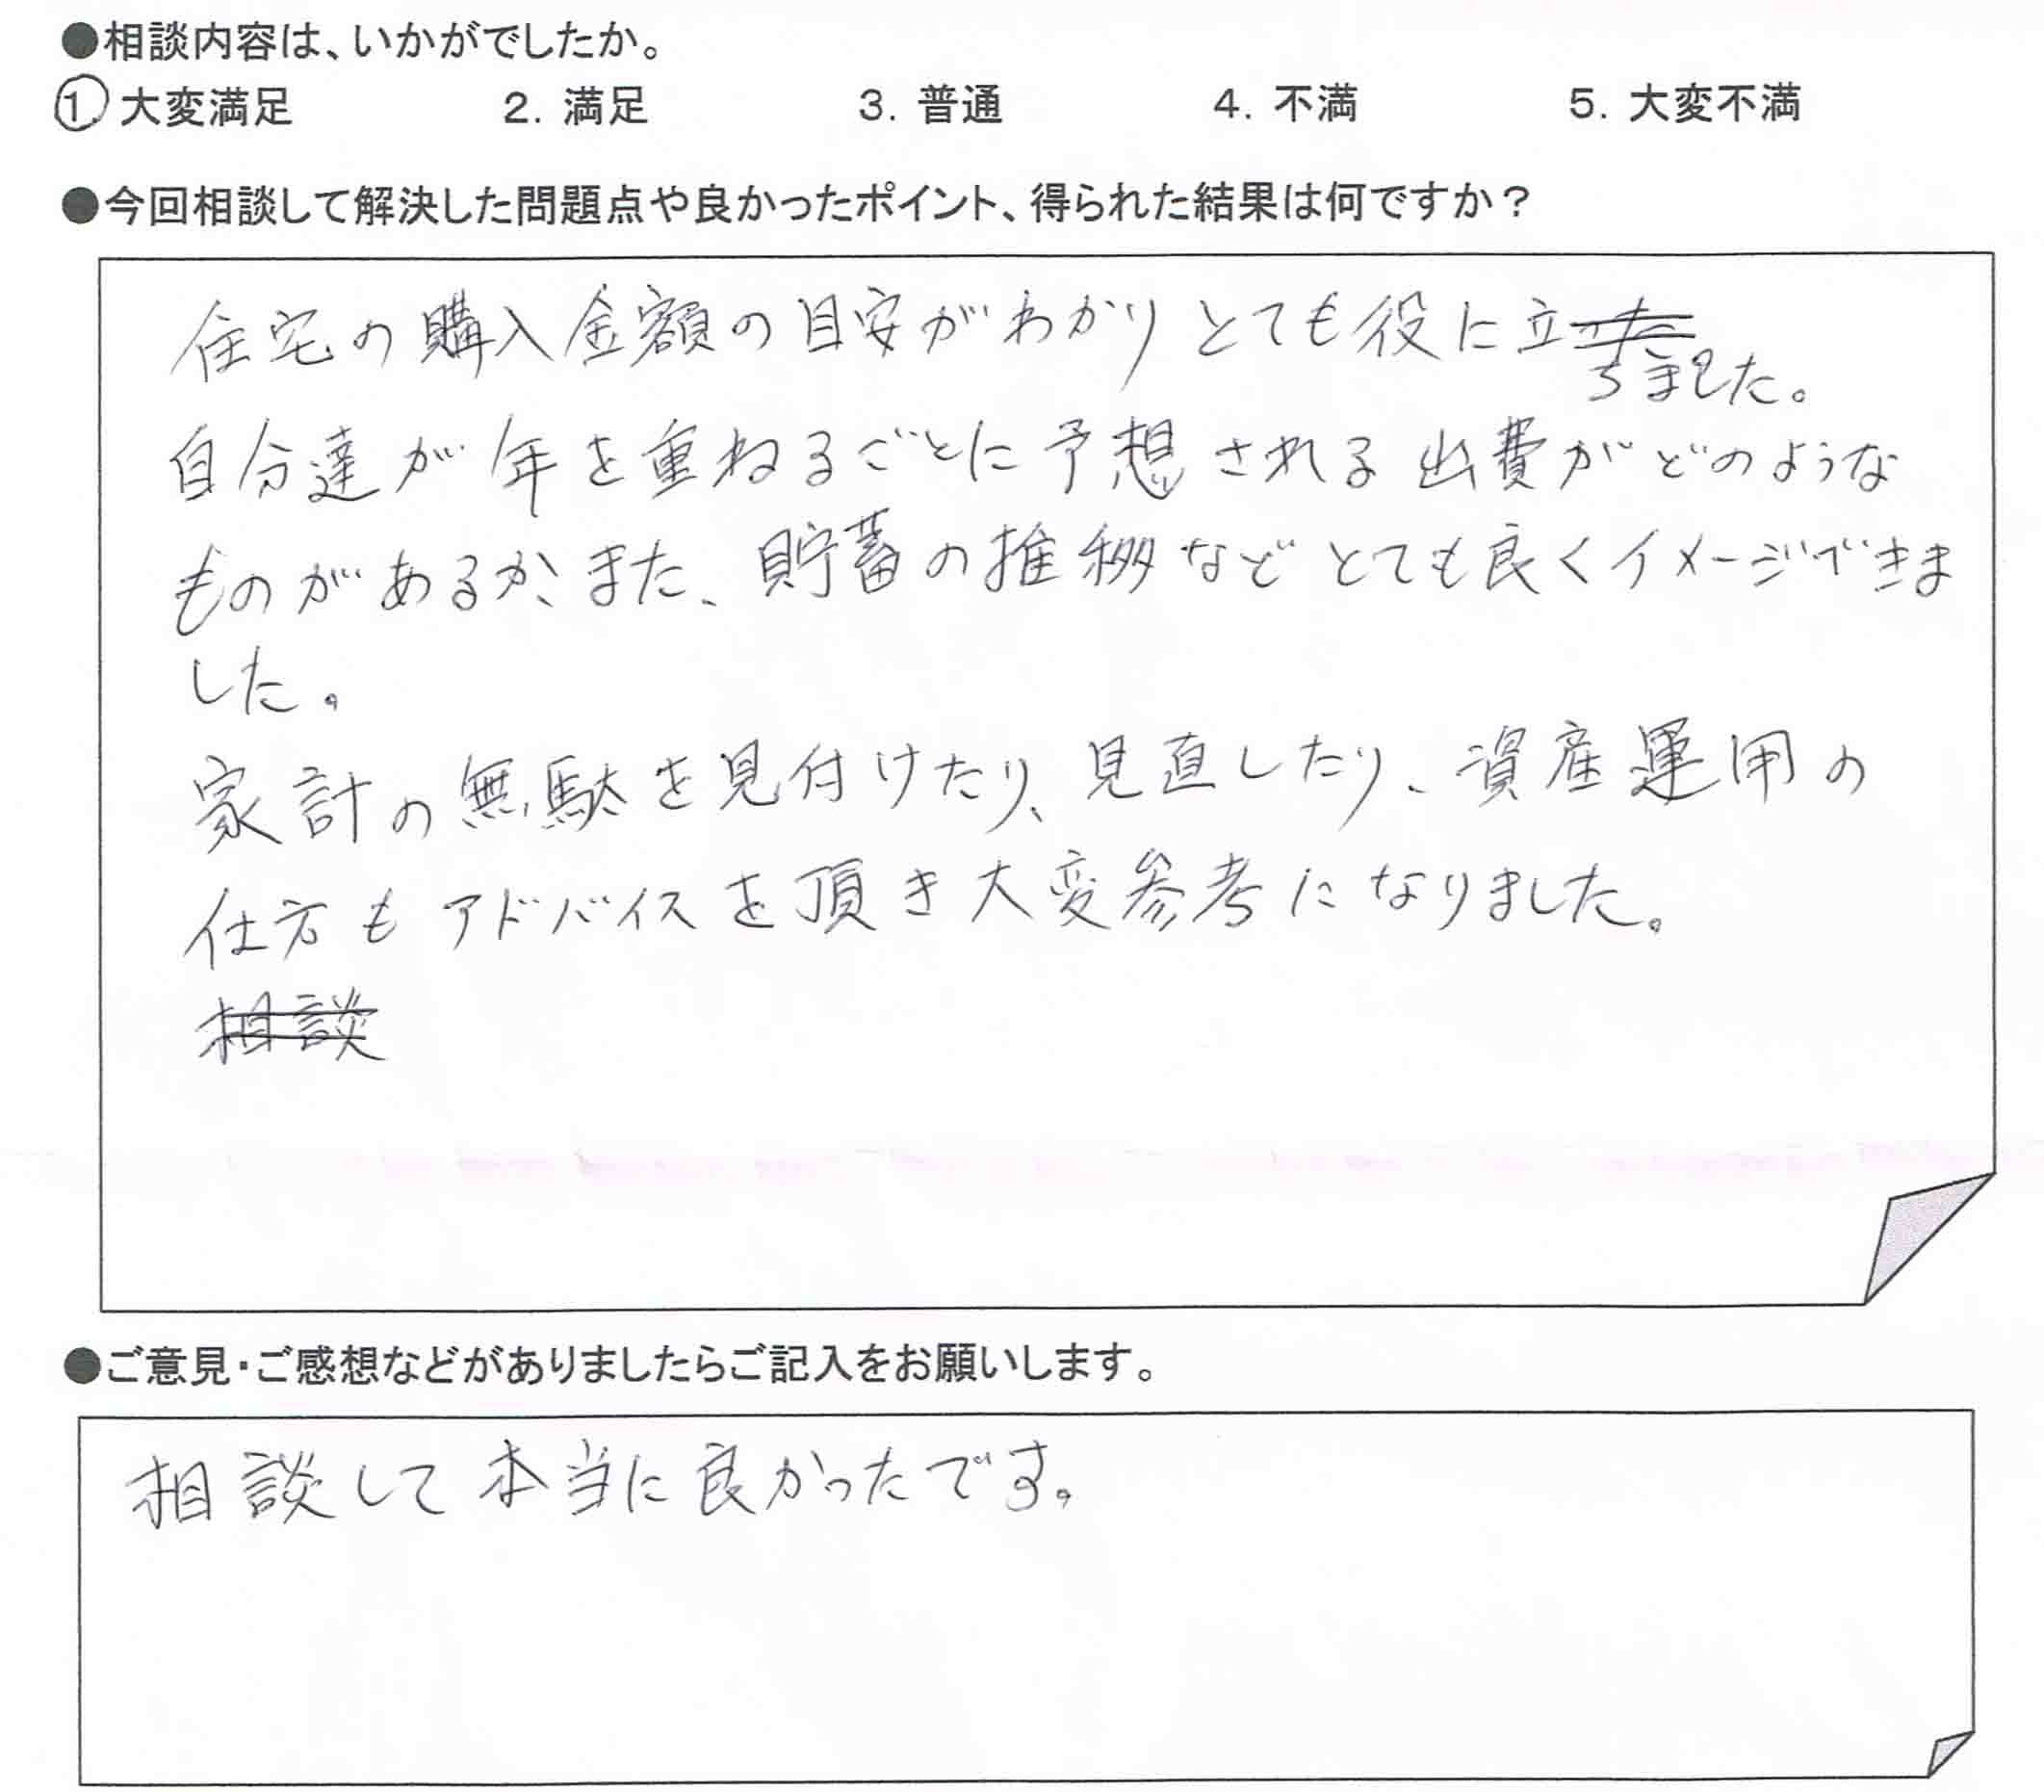 ●相談内容は、いかがでしたか。
1. 大変満足 2. 満足 3. 普通 4. 不満 5. 大変不満
●今回相談して解決した問題点や良かったポイント、得られた結果は何ですか？
住宅の購入金額の目安がわかりとても役に立った
ちました。
自分達が年を重ねるごとに予想される出費がどのような
ものがあるか、また、貯蓄の推移などとても良くイメージできま
した。
家計の無駄を見付けたり、見直したり、資産運用の
仕方もアドバイスを頂き大変参考になりました。
相談
●ご意見・ご感想などがありましたらご記入をお願いします。
相談して本当に良かったです。